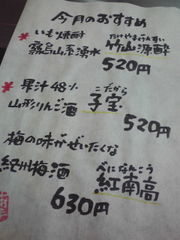 今月のおすすめ
いも焼酎
たけやまげんすい
霧島山系湧水 竹山源酔
520円
果汁48%
こだから
山形りんご酒 子宝
520円
梅の味がぜいたくな
べになんこう
紀州梅酒 紅南高
630円